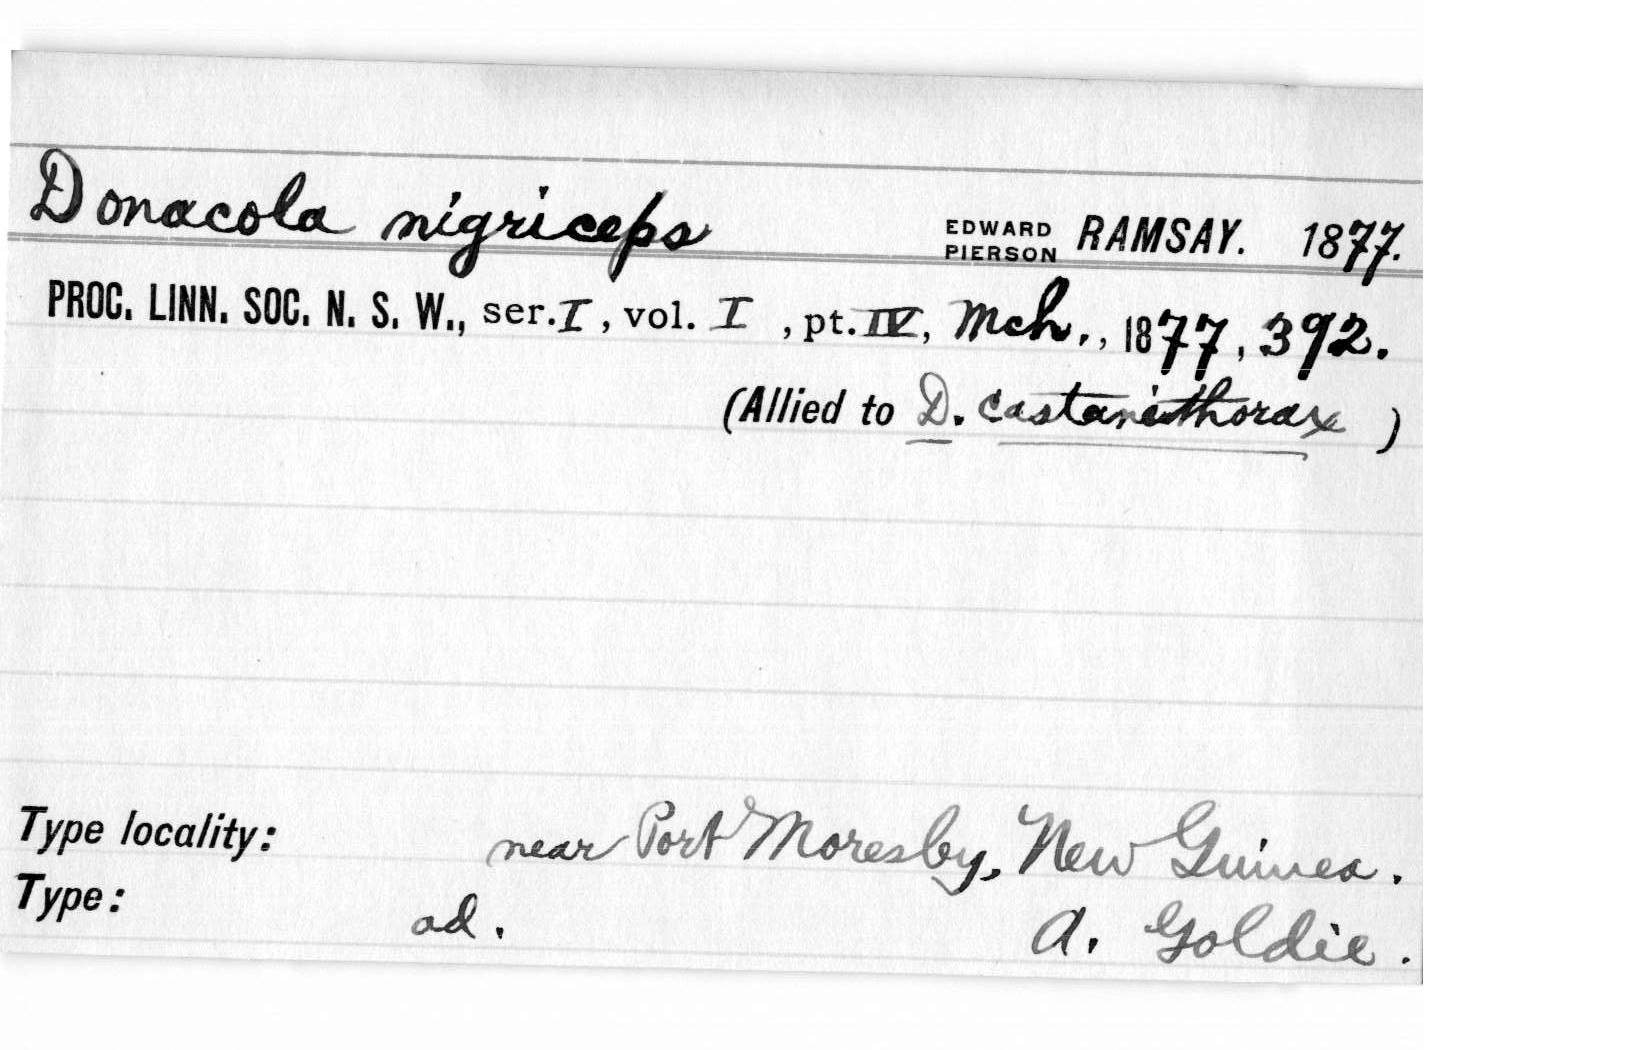 Donacola nigriceps EDWARD PIERSON RAMSAY. 1877.
PROC. LINN. SOC. N. S. W., ser. I, vol. I, pt. IV, Mch., 1877, 392.
(Allied to D. castaneithorax)
Type locality: near Port Moresby, New Guinea.
Type: ad. A. Goldie.